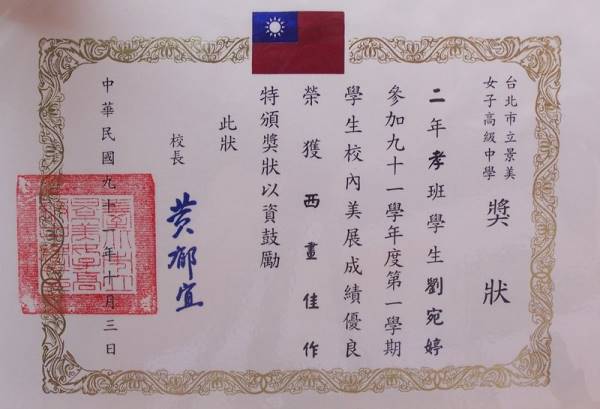 台北市立景美
女子高級中學
獎狀
二年孝班學生劉宛婷
參加九十一學年度第一學期
學生校內美展成績優良
榮獲西畫佳作
特頒獎狀以資鼓勵
此狀
校長
黃郁宜
中華民國九十一年十月三日